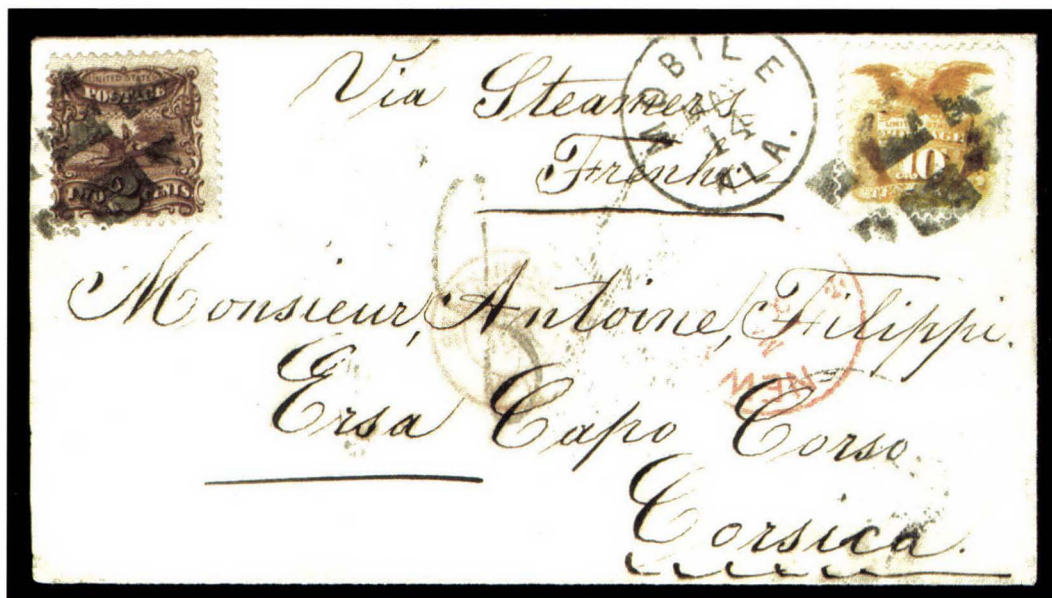 UNITED STATES
POSTAGE
TWO 2 CENTS
Via Steamers
Frenh
MOBILE
14
ALA.
10
Monsieur, Antoine, Filippi.
NEW
Ersa Capo Corso
Corsica.